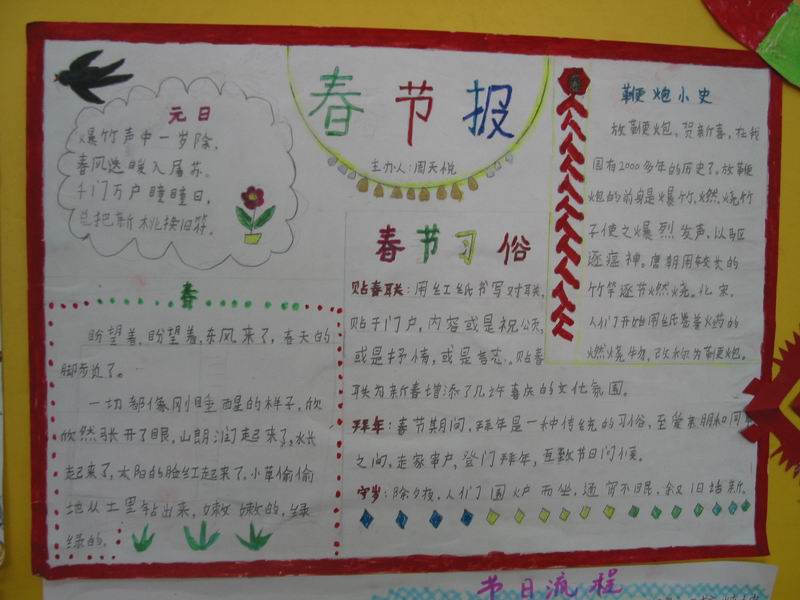 春节报
主办人:周天悦
元日
爆竹声中一岁除,
春风送暖入屠苏。
千门万户瞳瞳日,
总把新桃换旧符。
春
盼望着,盼望着,东风来了,春天的
脚步近了。
一切都像刚睡醒的样子,欣
欣然张开了眼。山朗润起来了,水长
起来了,太阳的脸红起来了。小草偷偷
地从土里钻出来,嫩嫩的,绿
绿的。
春节习俗
贴春联:用红纸书写对联,
贴于门户,内容或是祝颂,
或是抒情,或是言志。贴春
联为新春增添了几许喜庆的文化氛围。
拜年:春节期间,拜年是一种传统的习俗,至爱亲朋和同事
之间,走家串户,登门拜年,互致节日问候。
守岁:除夕夜,人们围炉而坐,通宵不眠,叙旧话新。
鞭炮小史
放鞭炮,贺新春,在我
国有2000多年的历史了。放鞭
炮的前身是爆竹,燃烧竹
子使之爆烈发声,以驱
逐瘟神。唐朝用较长的
竹竿逐节燃烧。北宋,
人们开始用纸卷着火药的
燃烧物,改称为鞭炮。
节日流程